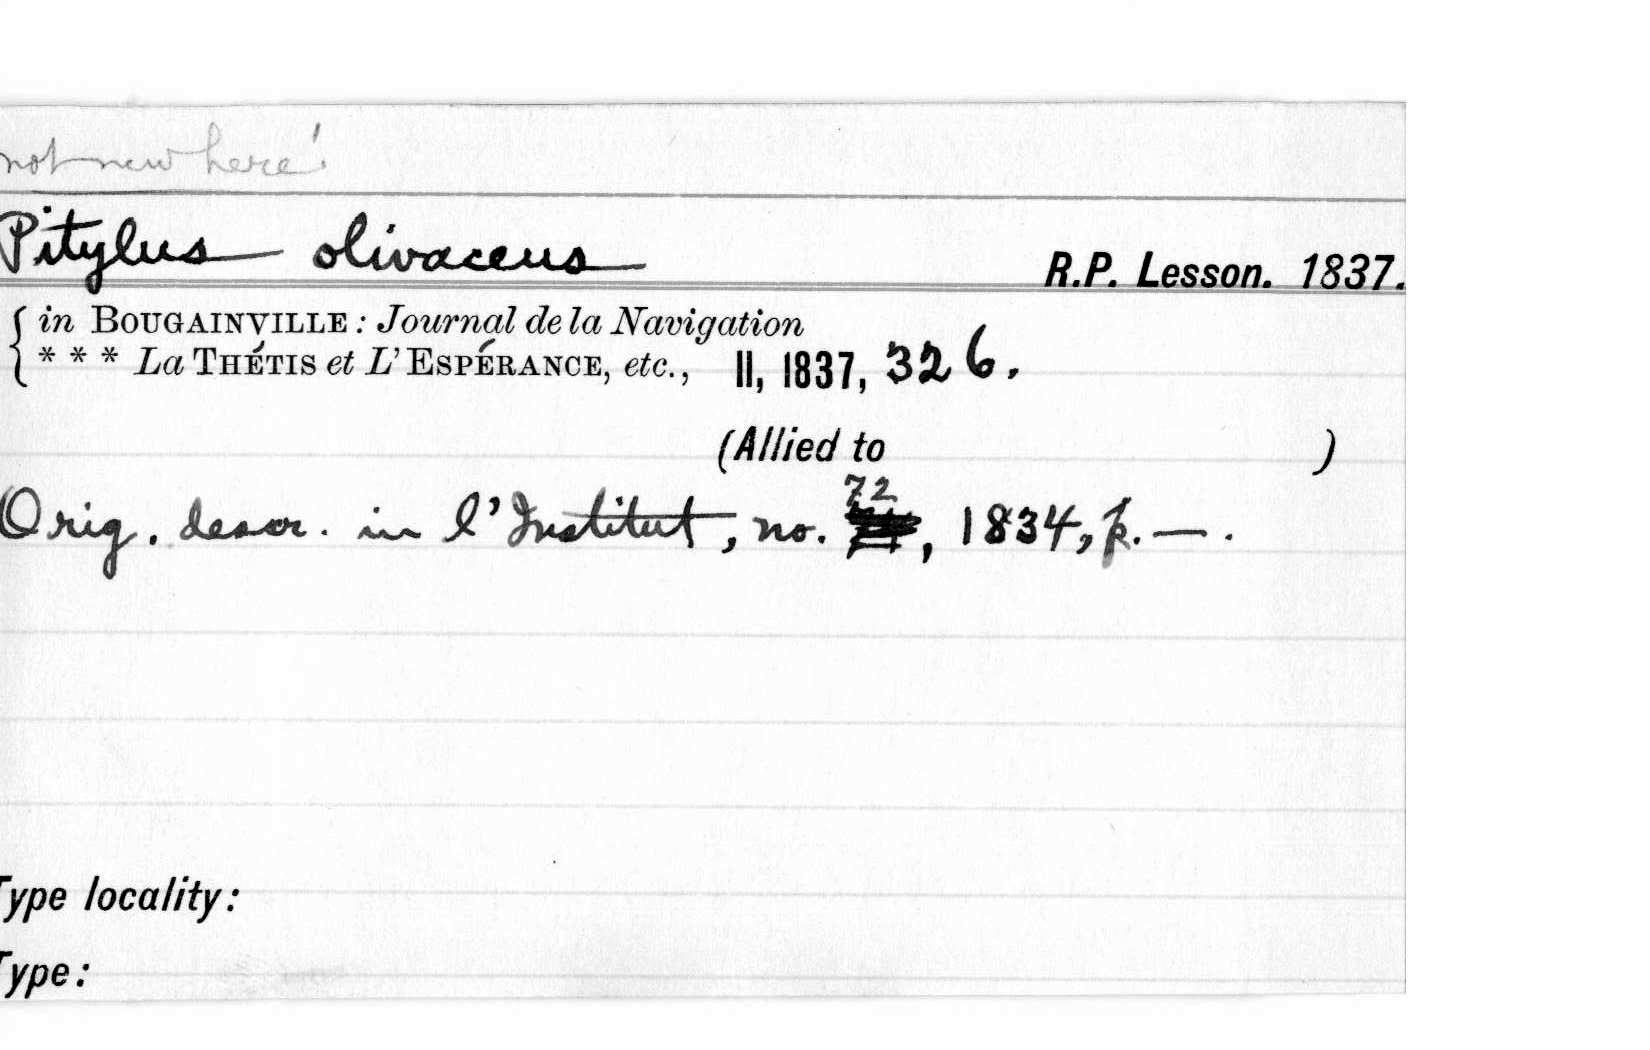 not new here!
Pitylus olivaceus R.P. Lesson. 1837.
in BOUGAINVILLE: Journal de la Navigation
* * * La THÉTIS et L'ESPÉRANCE, etc., II, 1837, 326.
(Allied to )
72
Orig. descr. in l'Institut, no. , 1834, p. — .
Type locality:
Type: